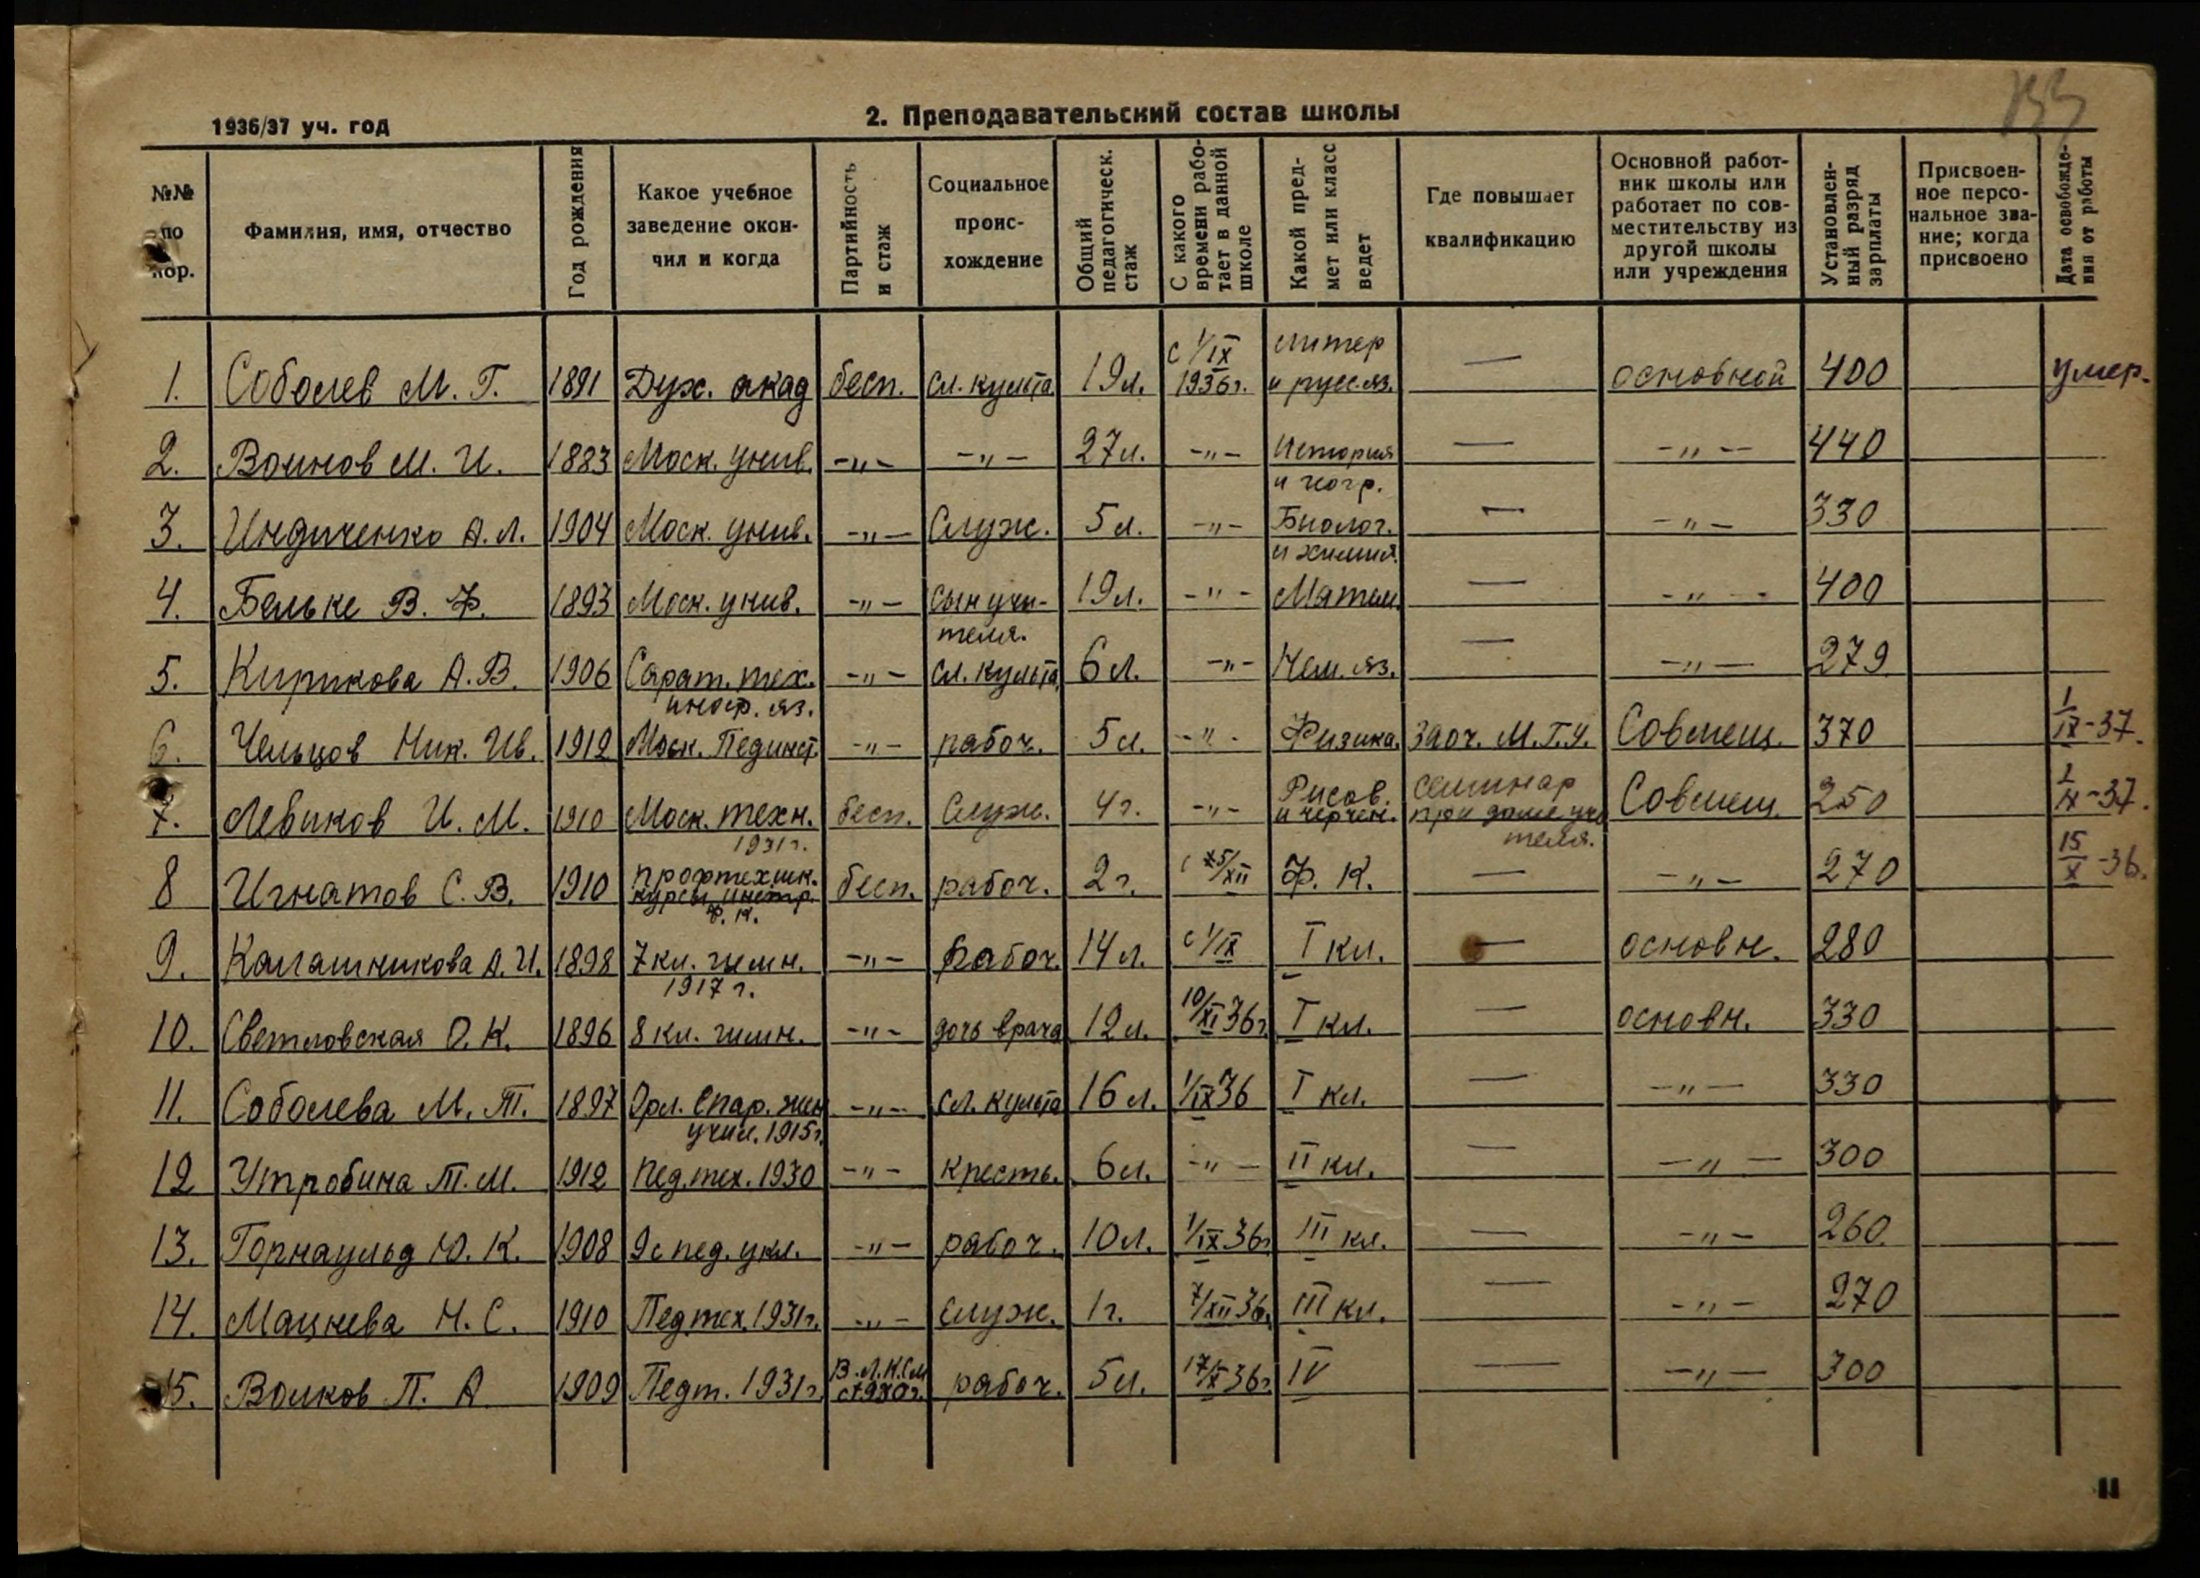 133
1936/37 уч. год
2. Преподавательский состав школы
№№ по пор.
Фамилия, имя, отчество
Год рождения
Какое учебное заведение окончил и когда
Партийность и стаж
Социальное происхождение
Общий педагогическ. стаж
С какого времени работает в данной школе
Какой предмет или класс ведет
Где повышает квалификацию
Основной работник школы или работает по совместительству из другой школы или учреждения
Установленный разряд зарплаты
Присвоенное персональное звание; когда присвоено
Дата освобождения от работы
1. Соболев М. Г. 1891 Дух. акад бесп. сл. культа 19 л. с 1/IX 1936 г. литер и русс. яз. — основной 400 умер.
2. Воинов М. И. 1883 Моск. унив. -„- -„- 27 л. -„- История и геогр. — -„- 440
3. Индиченко А. Л. 1904 Моск. унив. -„- Служ. 5 л. -„- Биолог. и химия. — -„- 330
4. Бельке В. Ф. 1893 Моск. унив. -„- сын учителя. 19 л. -„- Матем. — -„- 400
5. Кирикова А. В. 1906 Сарат. тех. иностр. яз. -„- сл. культа 6 л. -„- Нем. яз. — -„- 279
6. Чельцов Ник. Ив. 1912 Моск. Пединст. -„- рабоч. 5 л. -„- Физика. Заоч. М.Г.У. Совмещ. 370 1/IX-37.
7. Левиков И. М. 1910 Моск. техн. 1931 г. бесп. Служ. 4 г. -„- Рисов. и черчен. Семинар при доме учителя. Совмещ. 250 1/IX-37.
8 Игнатов С. В. 1910 Профтехшк. курсы инстр. Ф. К. бесп. рабоч. 2 г. с 25/XII Ф. К. — -„- 270 15/X-36.
9. Калашникова А. И. 1898 7 кл. гимн. 1917 г. -„- рабоч. 14 л. с 1/IX I кл. — основн. 280
10. Светловская О. К. 1896 8 кл. гимн. -„- дочь врача 12 л. 10/XI 36 г. I кл. — основн. 330
11. Соболева М. Т. 1897 Орл. Епар. жен учил. 1915 г. -„- сл. культа 16 л. 1/IX 36 I кл. — -„- 330
12 Утробина Т. М. 1912 Пед. тех. 1930 -„- кресть. 6 л. -„- II кл. — -„- 300
13. Горнаульд Ю. К. 1908 9 с пед. укл. -„- рабоч. 10 л. 1/IX 36 г III кл. — -„- 260.
14. Мацнева Н. С. 1910 Пед. тех. 1931 г. -„- Служ. 1 г. 7/XII 36 г. III кл. — -„- 270
15. Волков П. А. 1909 Педт. 1931 г. В.Л.К.СМ рабоч. 5 л. 17/X 36 г. IV — -„- 300
11